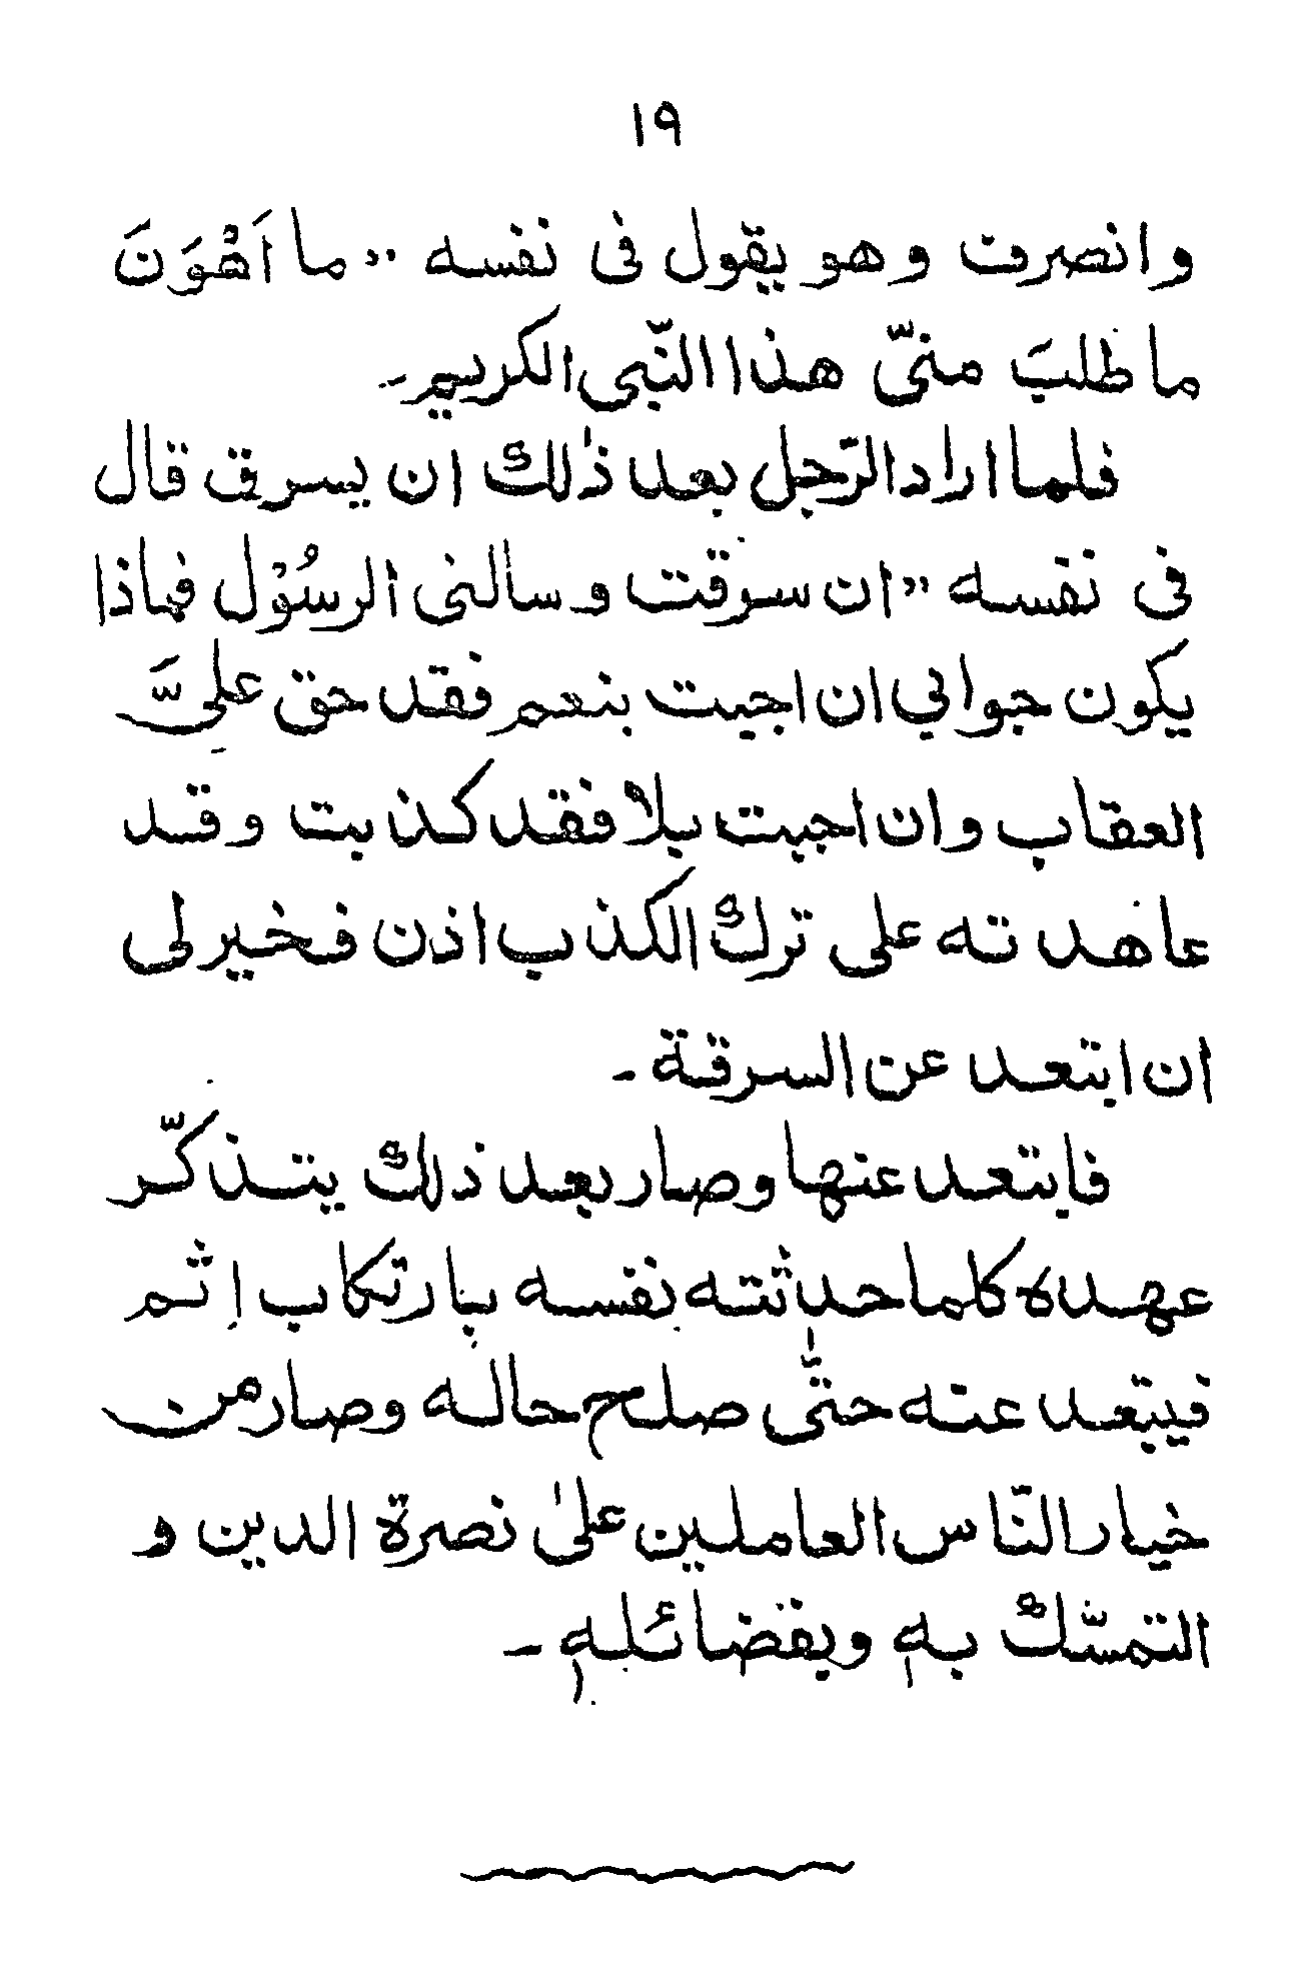 ١٩
وانصرف وهو يقول فى نفسه ”ما اَهْوَنَ
ما طلبَ منىّ هذا النّبى الكريم۔
فلما اراد الرّجل بعد ذٰلك ان يسرق قال
فى نفسه ”ان سرقت وسالنى الرسُوْل فماذا
يكون جوابي ان اجبت بنعم فقد حق علىَّ
العقاب وان اجبت بلا فقد كذبت وقد
عاهدته على ترك الكذب اذن فخير لى
ان ابتعد عن السرقة۔
فابتعد عنها وصار بعد ذلك يتذكّر
عهده كلما حدثته نفسه بارتكاب اِثم
فيبتعد عنه حتّٰى صلح حاله وصار من
خيار النّاس العاملين علىٰ نصرة الدين و
التمسّك بهٖ وبفضائلهٖ۔